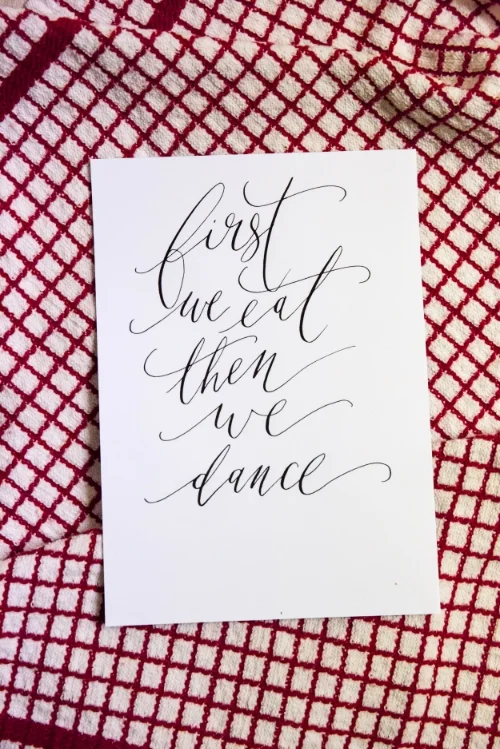 first
we eat
then
we
dance